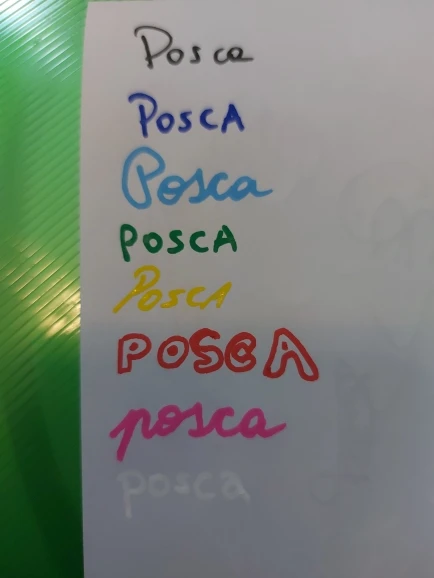 Posca
POSCA
Posca
POSCA
POSCA
POSCA
posca
posca